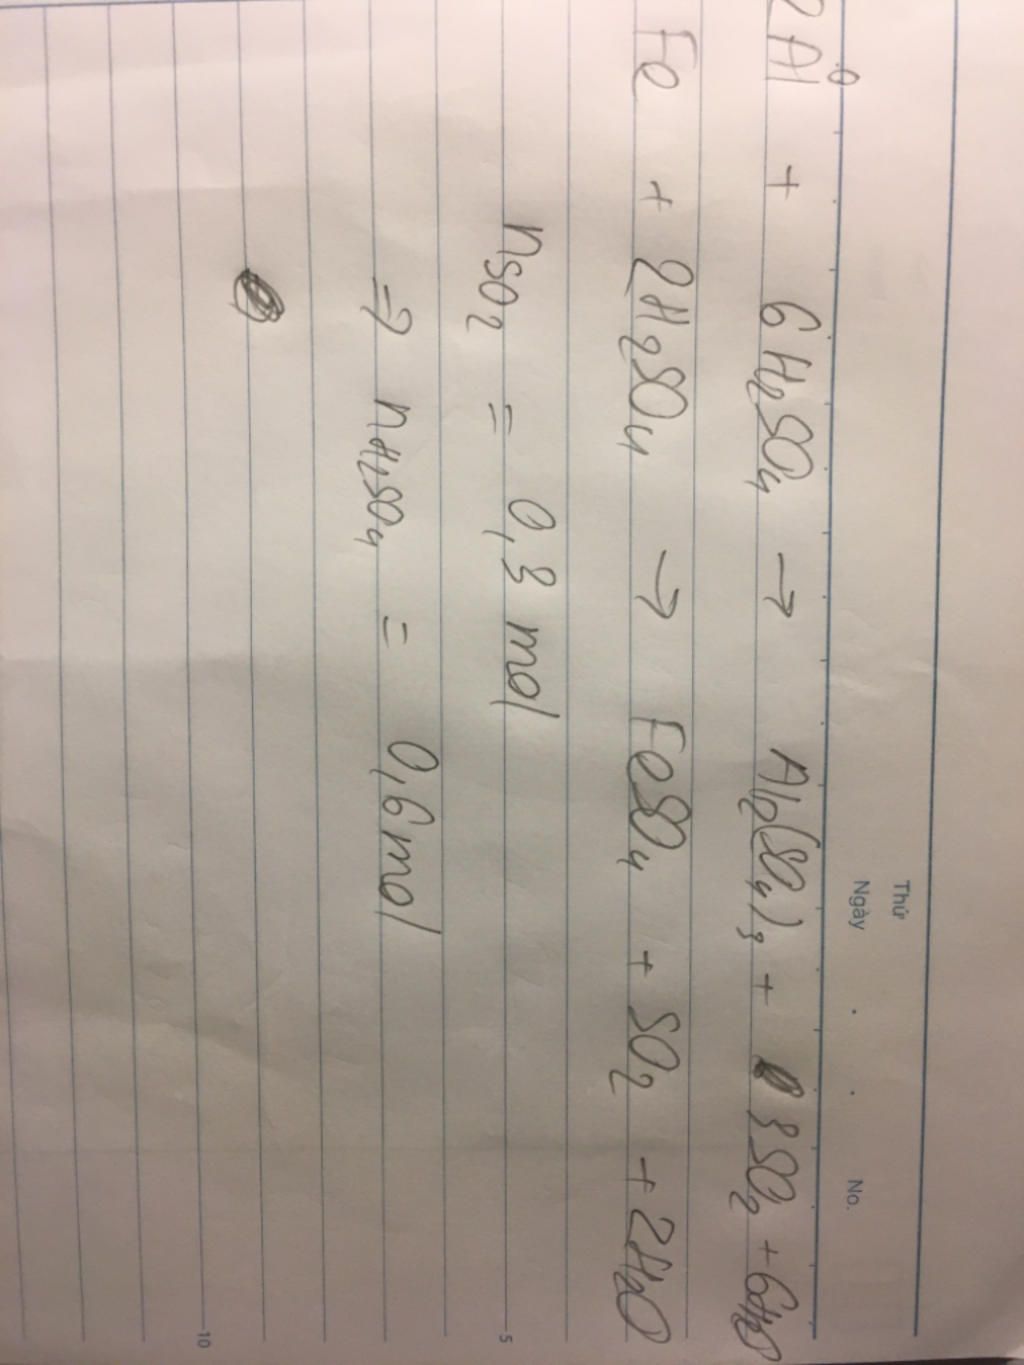 Thứ
Ngày . . No.
2Al⁰ + 6H₂SO₄ → Al₂(SO₄)₃ + 3SO₂ + 6H₂O
Fe + 2H₂SO₄ → FeSO₄ + SO₂ + 2H₂O
nSO₂ = 0,3 mol
5
⇒ nH₂SO₄ = 0,6 mol
10